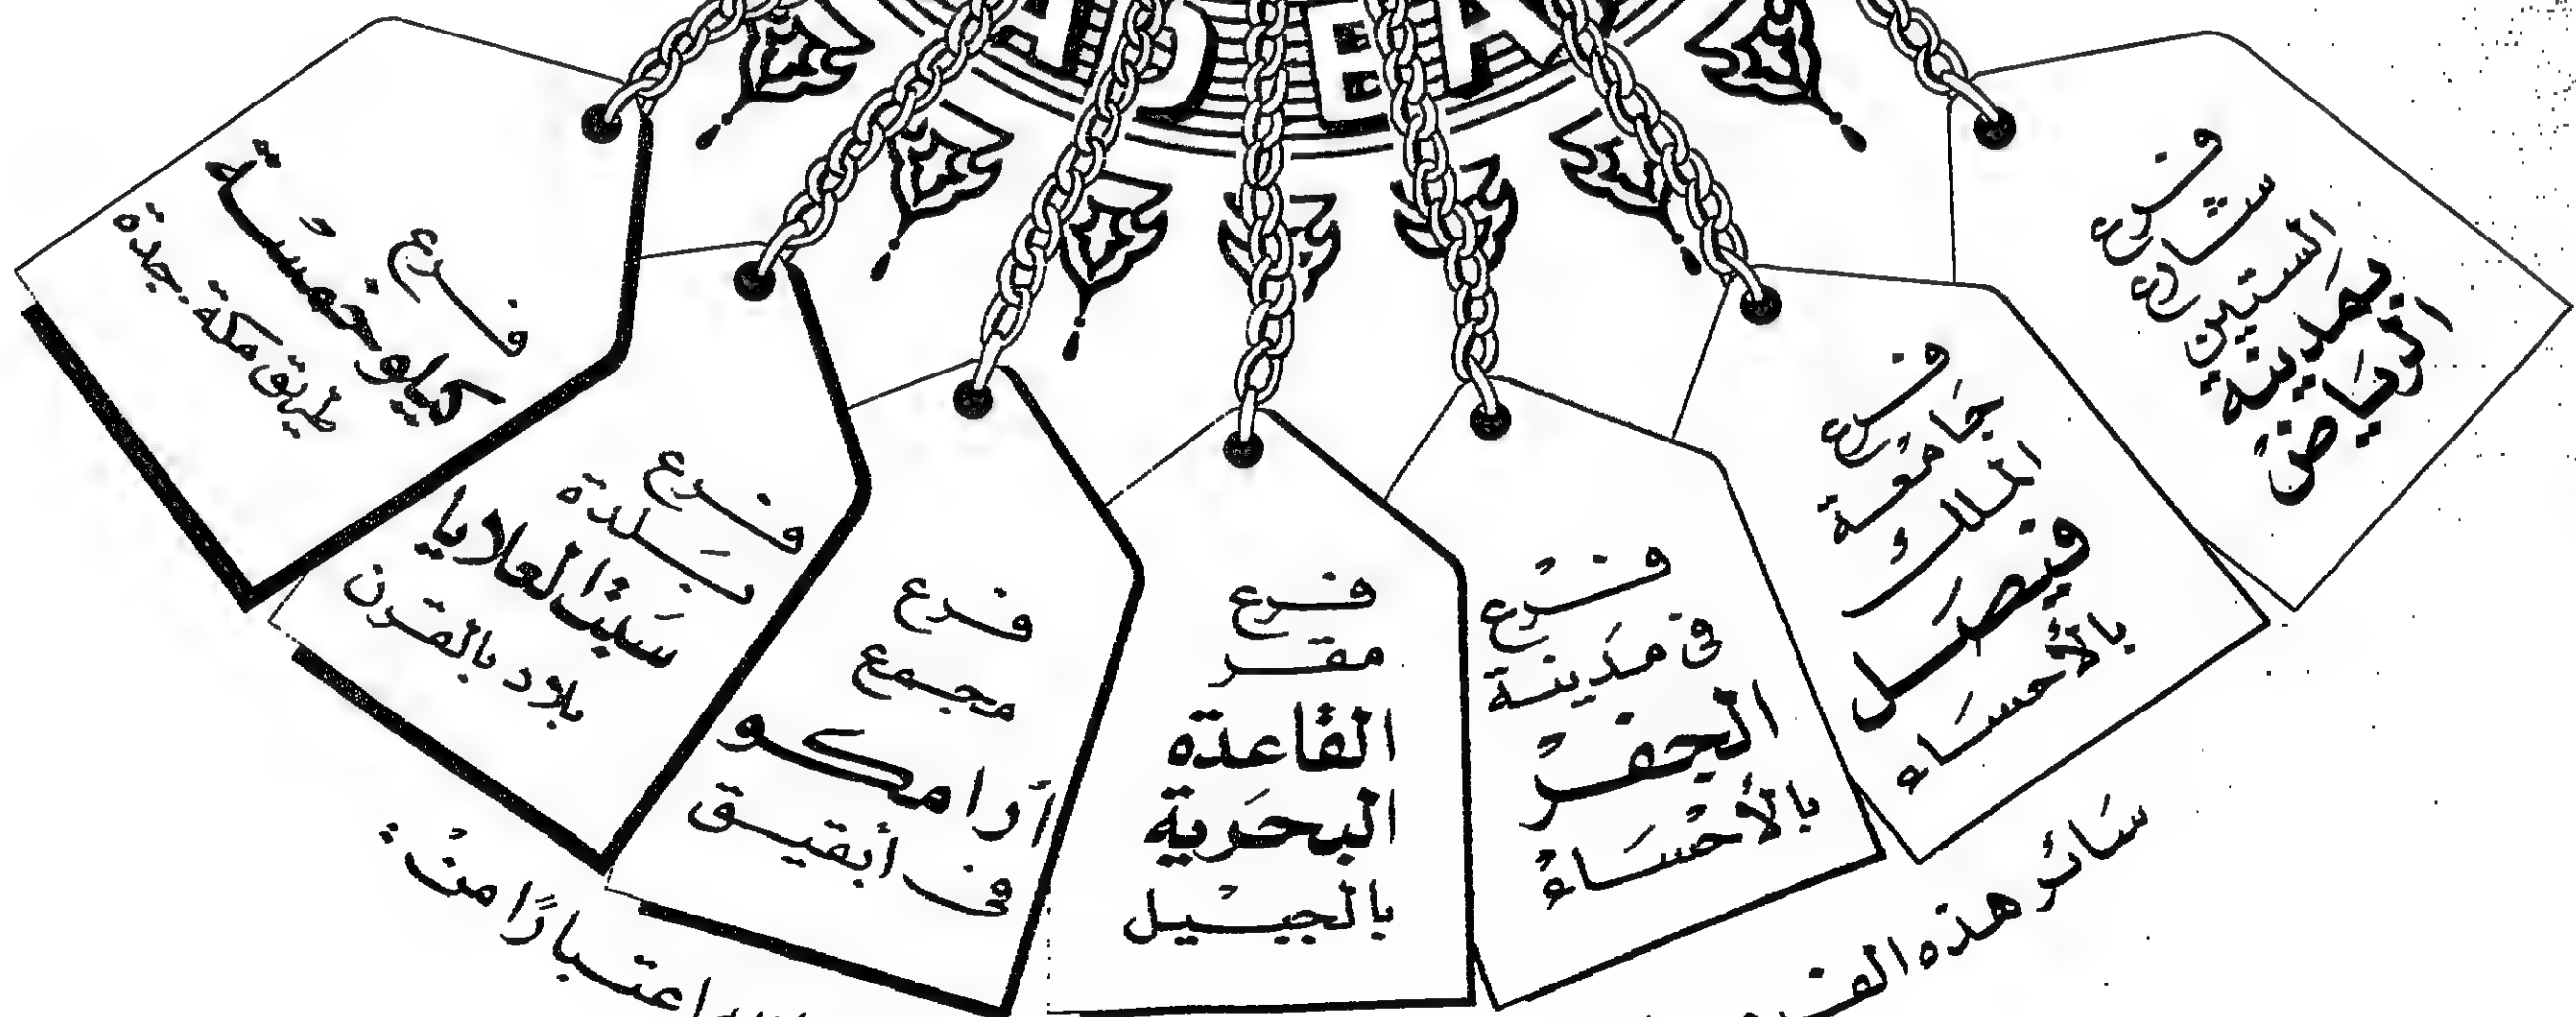 فرع
شارع
الستين
بمدينة
الرياض
فرع
جامعة
الملك
فيصل
بالأحساء
فرع
في مدينة
الجفر
بالأحساء
فرع
مقر
القاعدة
البحرية
بالجبيل
فرع
مجمع
أرامكو
في أبقيق
فرع
بلدة
سبت العلايا
بلاد بالقرن
فرع
كيلو خمسة
طريق مكة. جدة
سائر هذه
اعتبارًا من: